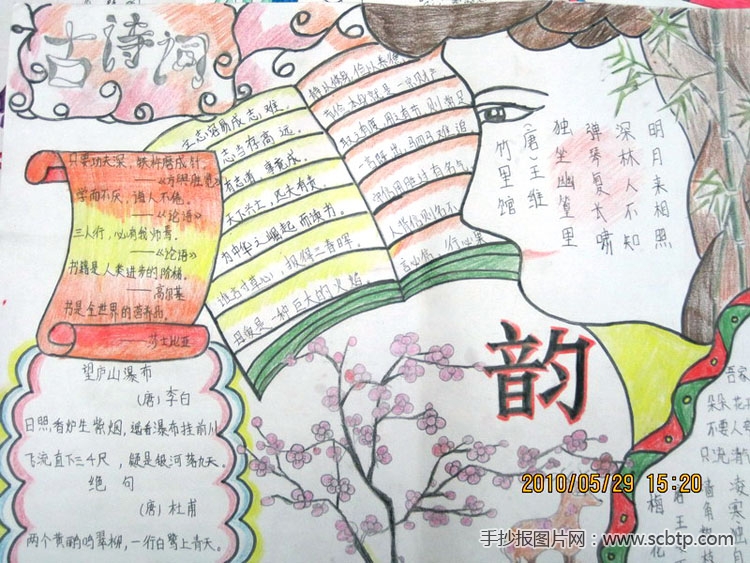 古诗词
只要功夫深，铁杵磨成针。
——《方舆胜览》
学而不厌，诲人不倦。
——《论语》
三人行，必有我师焉。
——《论语》
书籍是人类进步的阶梯。
——高尔基
书是全世界的营养品。
——莎士比亚
望庐山瀑布
（唐）李白
日照香炉生紫烟，遥看瀑布挂前川
飞流直下三千尺，疑是银河落九天。
绝句
（唐）杜甫
两个黄鹂鸣翠柳，一行白鹭上青天。
立志容易成志难。
志当存高远。
有志者，事竟成。
天下兴亡，匹夫有责。
为中华之崛起而读书。
谁言寸草心，报得三春晖。
母爱是一种巨大的火焰。
一言既出，驷马难追
言必信，行必果
竹里馆
（唐）王维
独坐幽篁里
弹琴复长啸
深林人不知
明月来相照
韵
吾家
朵朵花
不要人
只流清
墙角数枝
凌寒独自
梅花
2010/05/29 15:20
手抄报图片网：www.scbtp.com